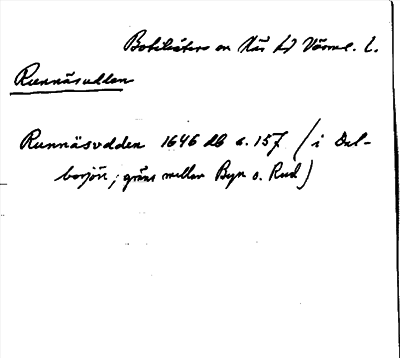 Botilsäters sn Näs hd Värml. l.
Runnäsudden
Runnäsvdden 1646 db s. 157 (i Dal-
borsjön; gräns mellan Byn o. Rud)